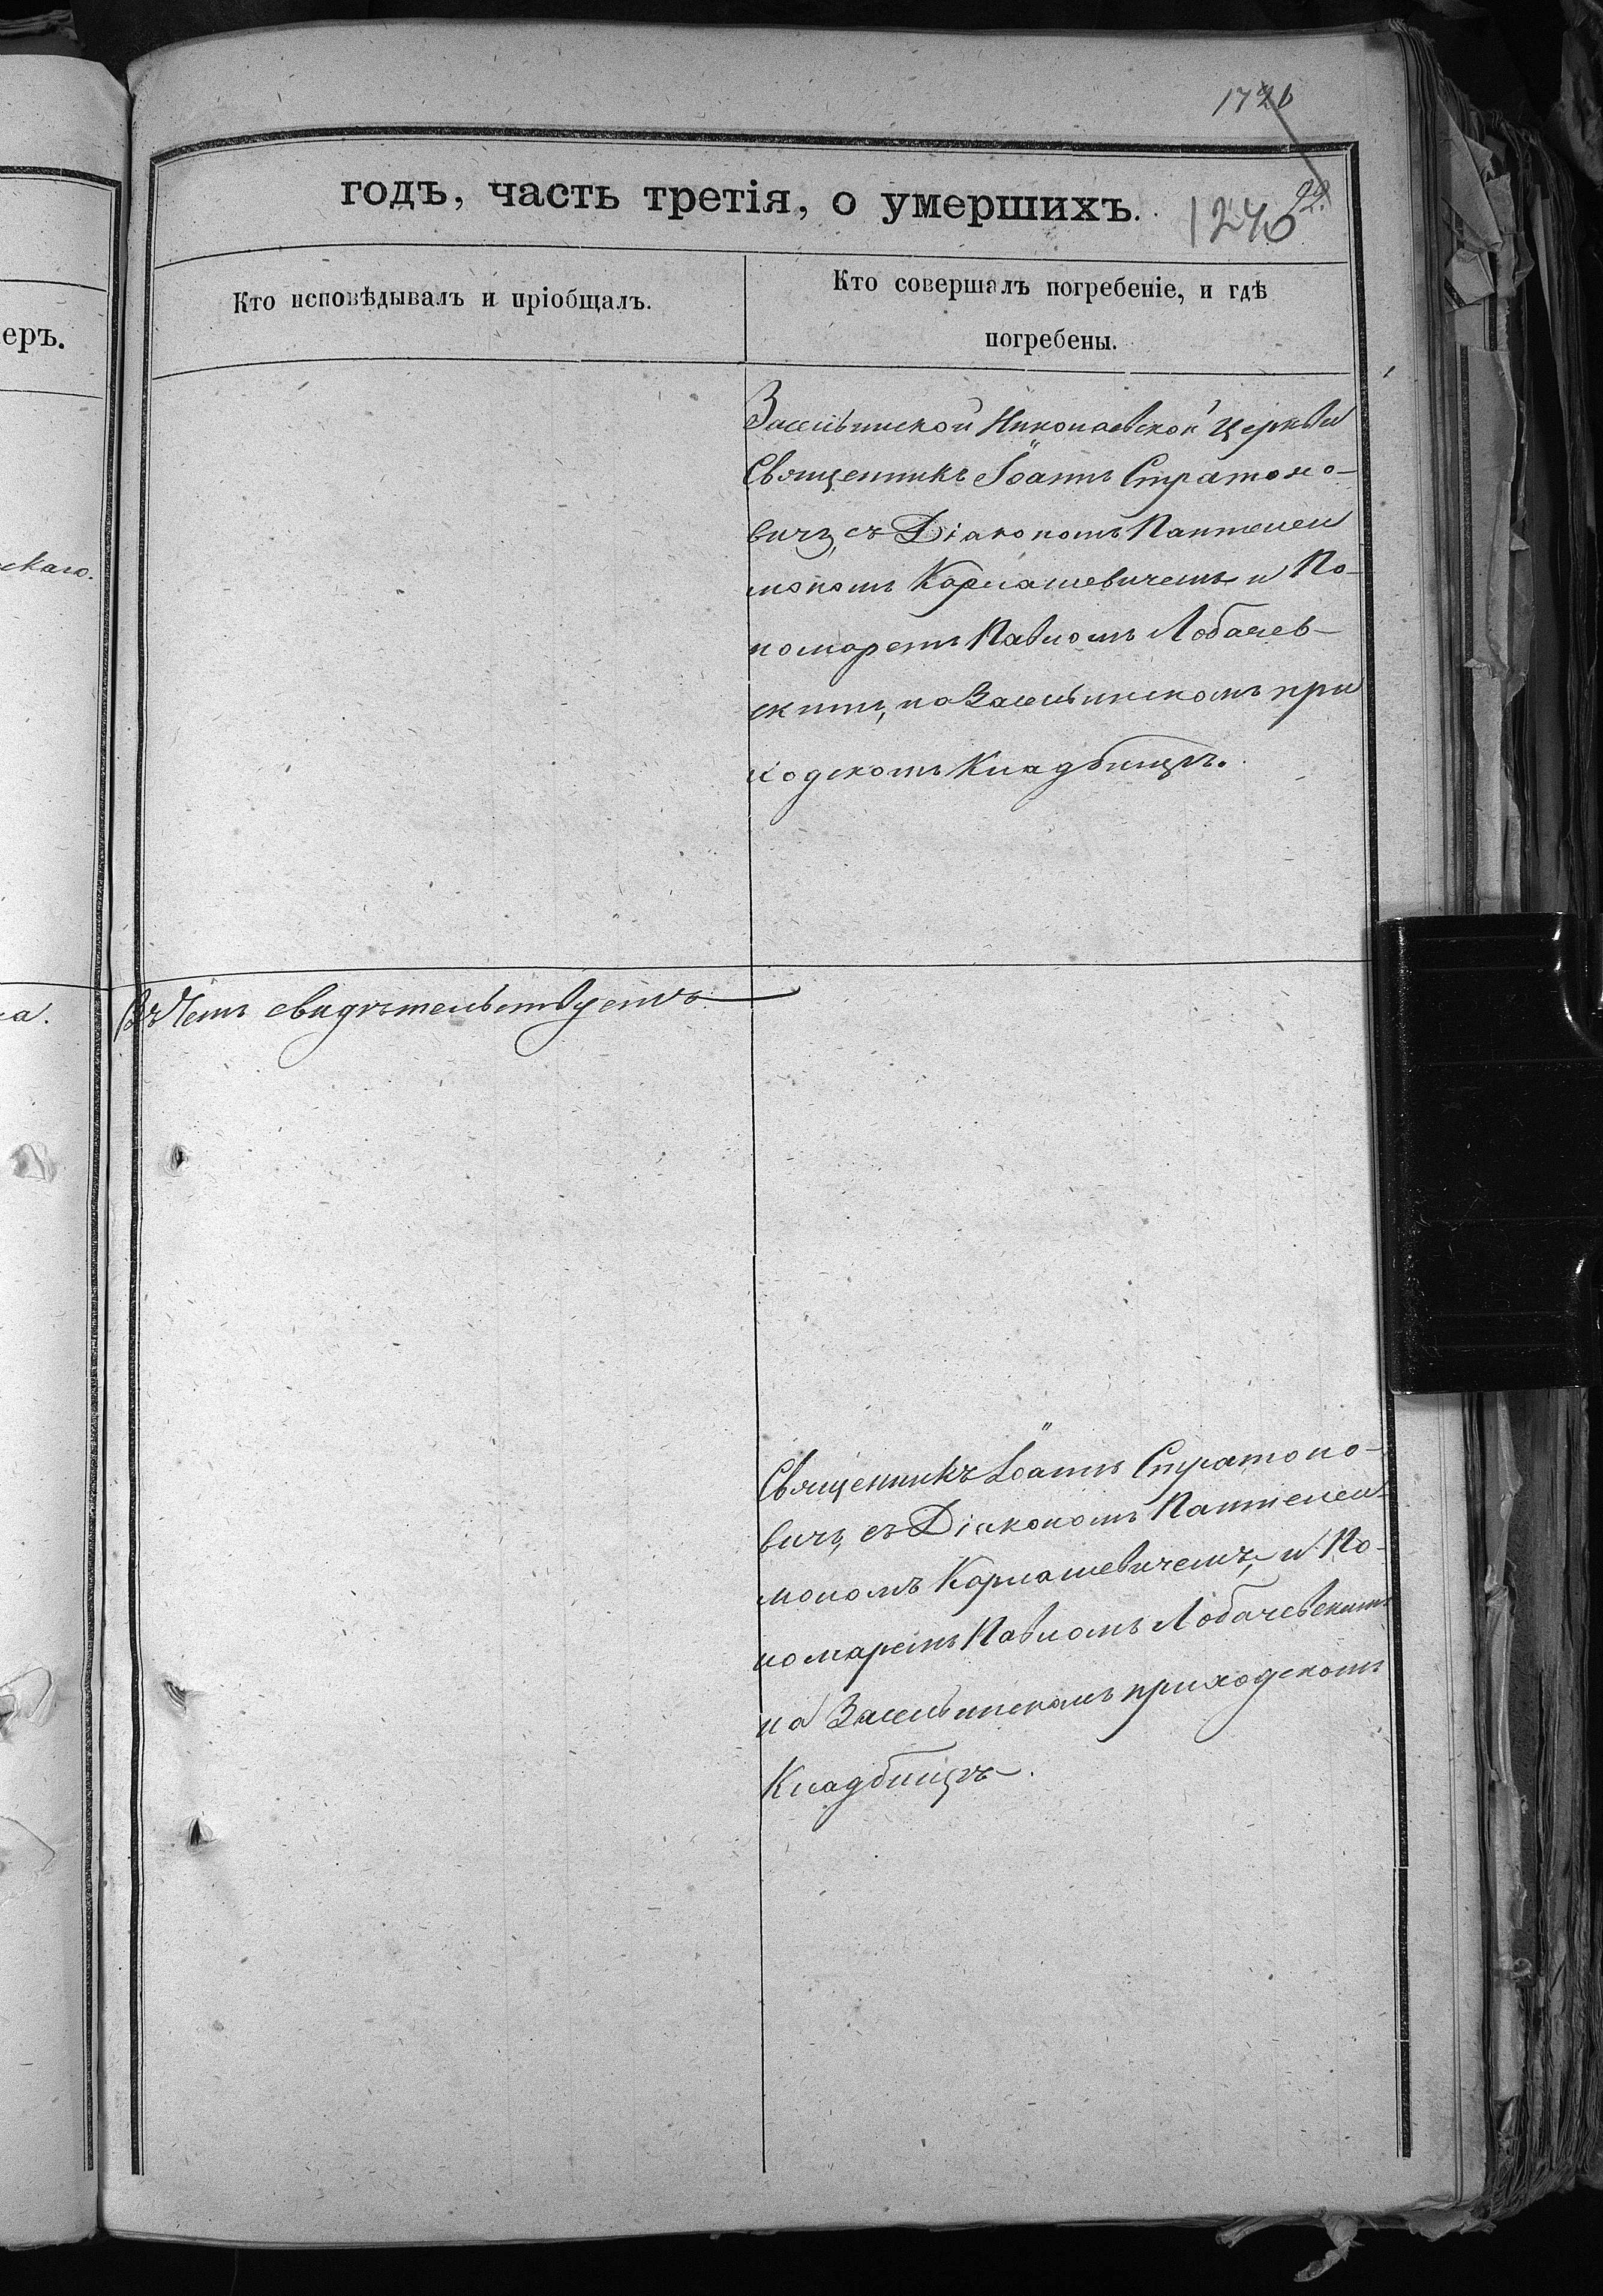 1726
годъ, часть третія, о умершихъ.
1246
92.
Кто исповѣдывалъ и пріобщалъ.
Кто совершалъ погребеніе, и гдѣ
погребены.
еръ.
скаго.
Засельинской Николаевской Церкви
Священникъ Іоаннъ Стратоно-
вичъ, съ Діакономъ Пантелеи
мономъ Кармашевичемъ и По-
номаремъ Павломъ Лобачев-
скимъ, на Засельинскомъ при
ходскомъ Кладбищѣ.
а.
Въ чемъ свидѣтельствуетъ
Священникъ Іоаннъ Стратоно-
вичъ, съ Діакономъ Пантелеи-
мономъ Кармашевичемъ, и По-
номаремъ Павломъ Лобачевскимъ
на Засельинскомъ приходскомъ
Кладбищѣ.